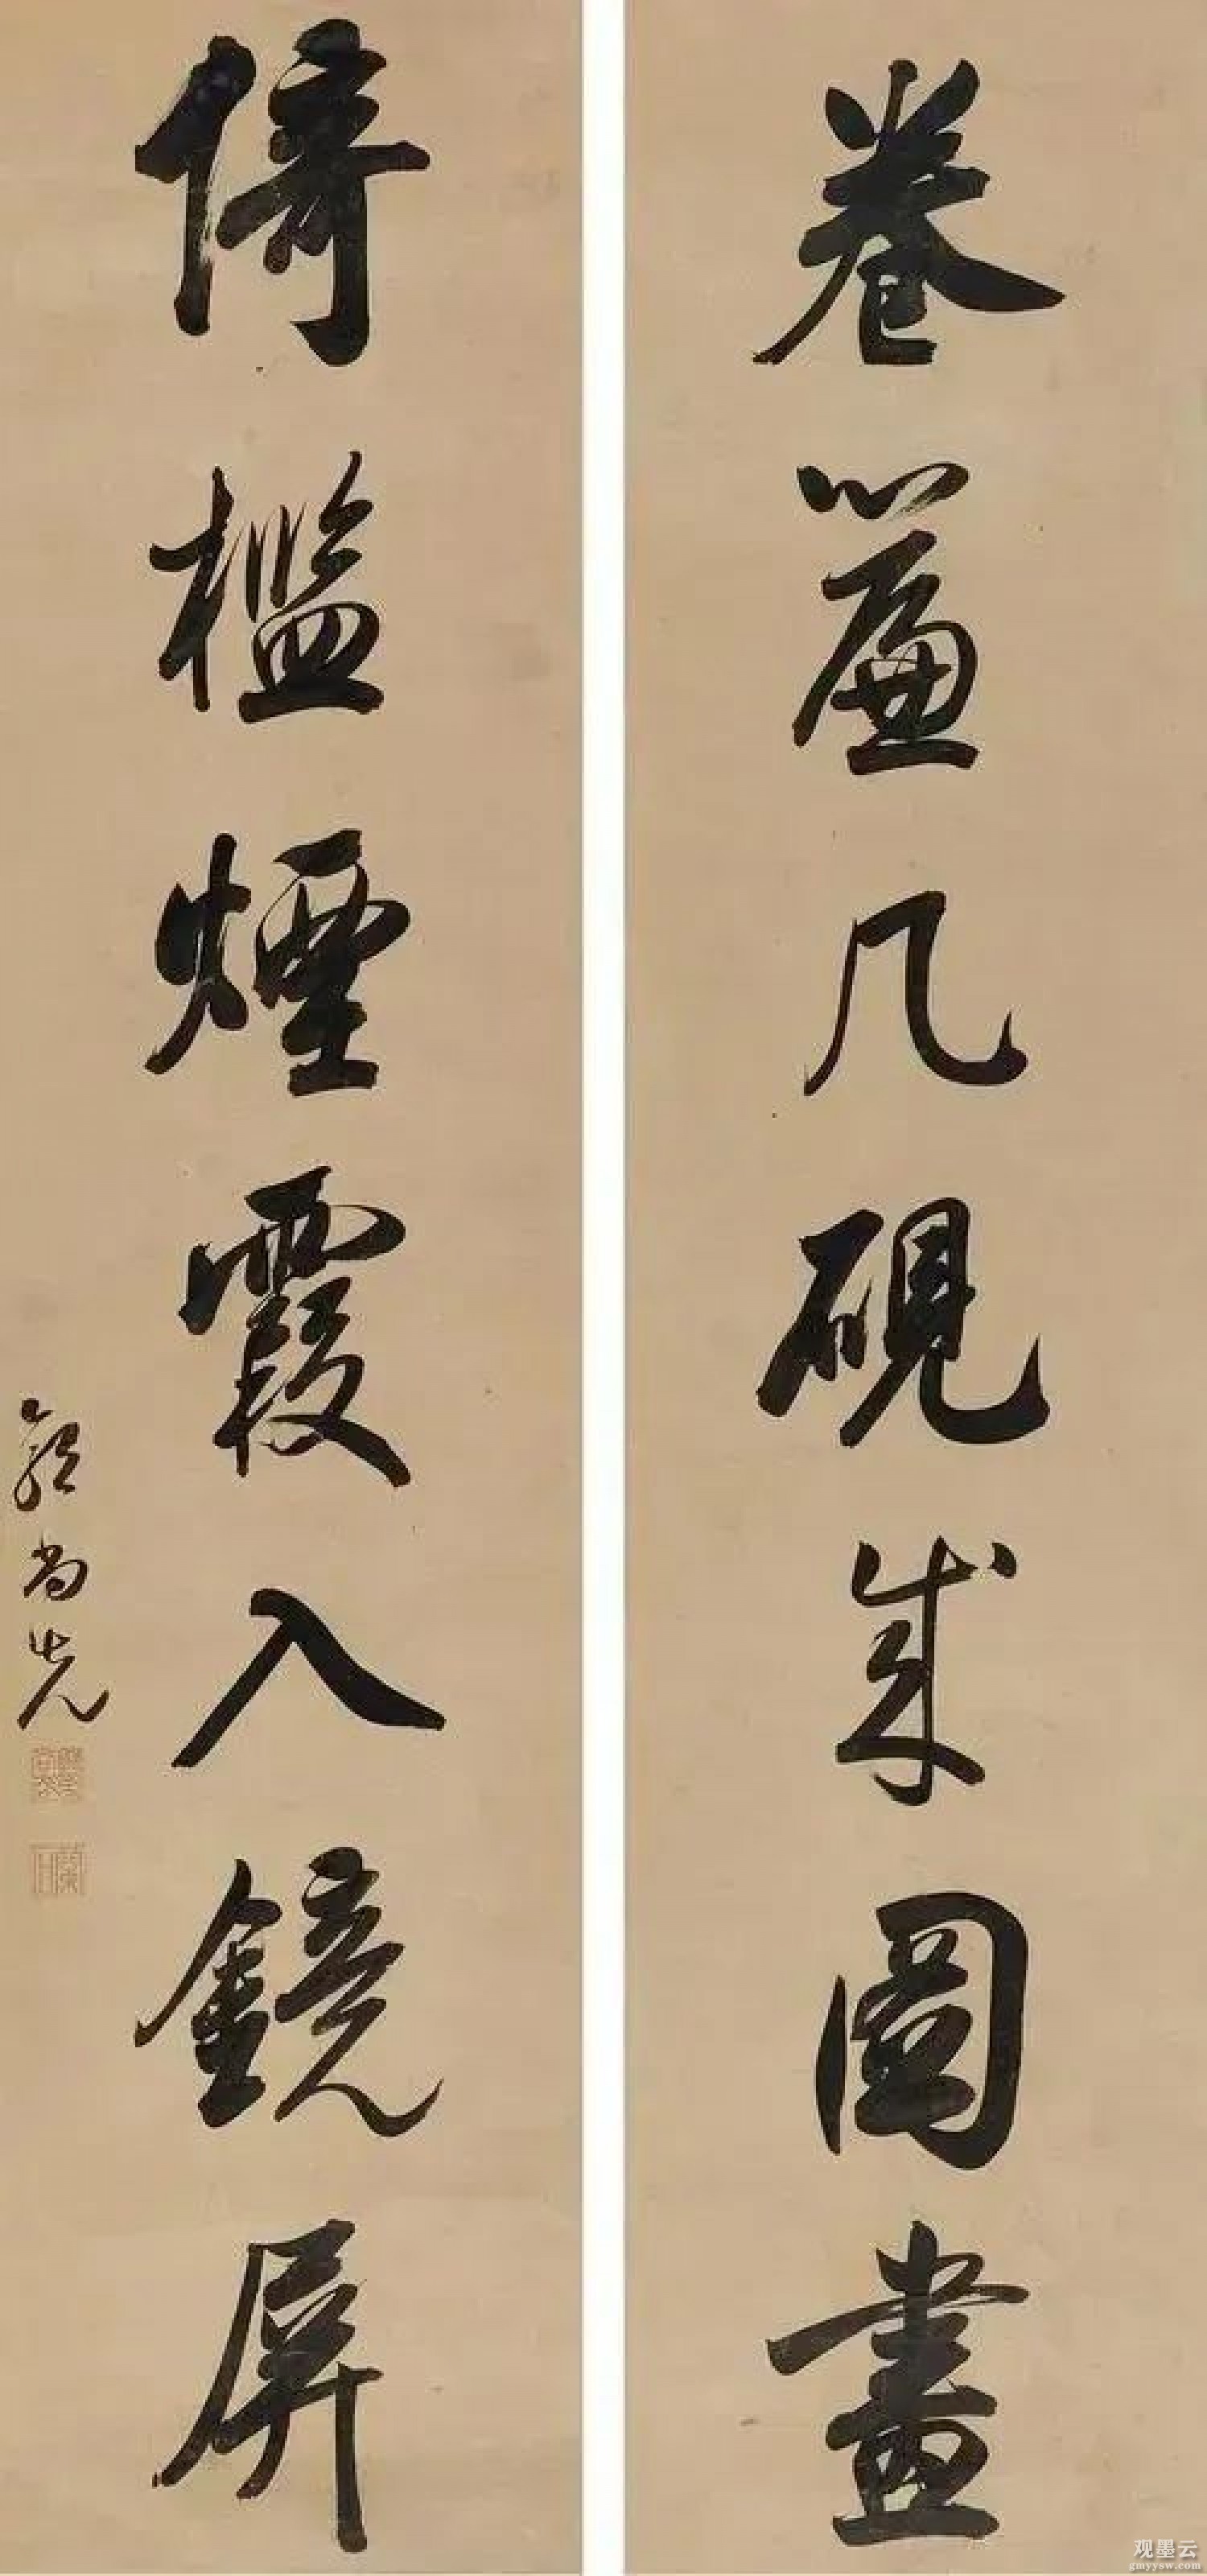 卷簾几硯成圖畫
倚檻煙霞入鏡屏
郭尚先
观墨云
gmyysw.com